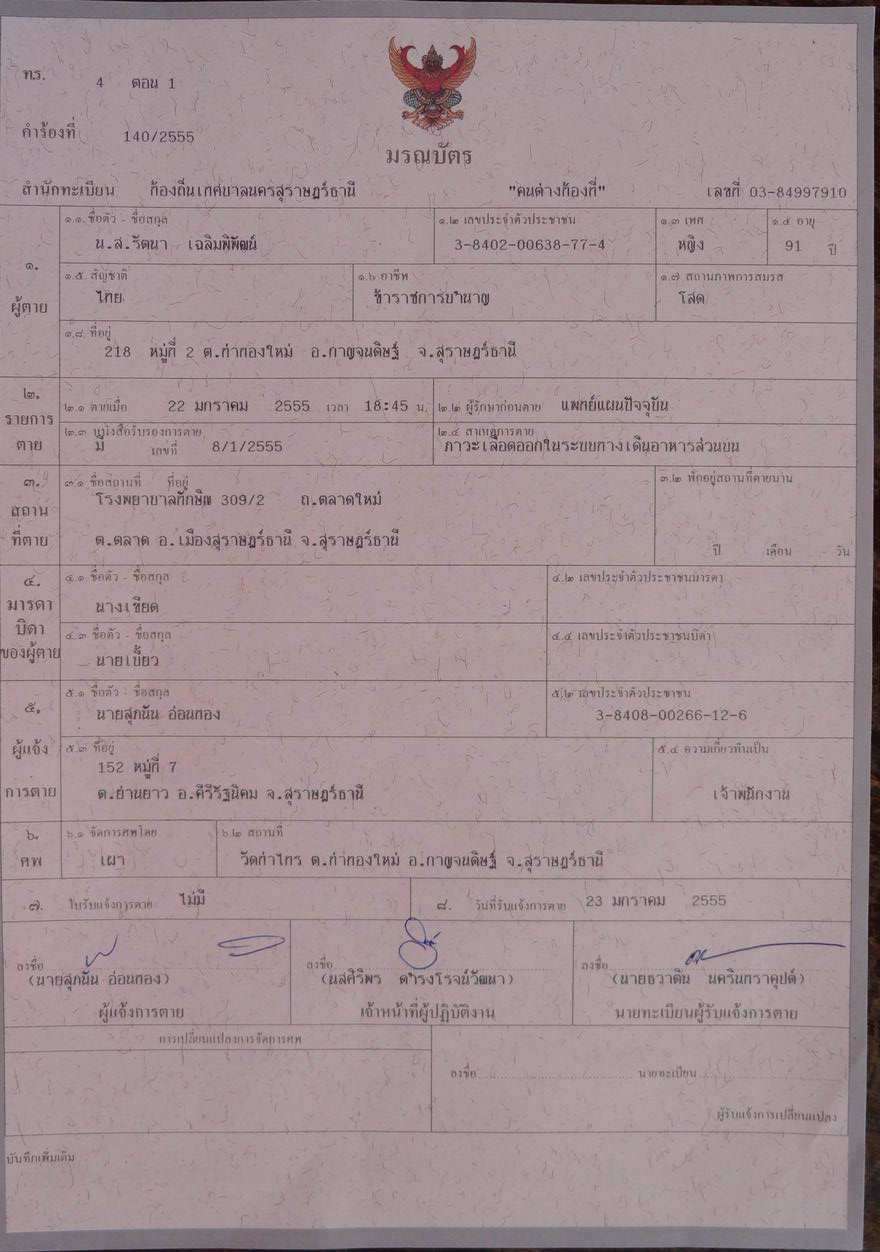 ท.ร. 4 ตอน 1
คำร้องที่ 140/2555
มรณบัตร
สำนักทะเบียน ท้องถิ่นเทศบาลนครสุราษฎร์ธานี "คนต่างท้องที่" เลขที่ 03-84997910
๑. ผู้ตาย
๑.๑ ชื่อตัว - ชื่อสกุล ๑.๒ เลขประจำตัวประชาชน ๑.๓ เพศ ๑.๔ อายุ
น.ส.รัตนา เฉลิมพิพัฒน์ 3-8402-00638-77-4 หญิง 91 ปี
๑.๕ สัญชาติ ๑.๖ อาชีพ ๑.๗ สถานภาพการสมรส
ไทย ข้าราชการบำนาญ โสด
๑.๘ ที่อยู่
218 หมู่ที่ 2 ต.ท่าทองใหม่ อ.กาญจนดิษฐ์ จ.สุราษฎร์ธานี
๒. รายการตาย
๒.๑ ตายเมื่อ 22 มกราคม 2555 เวลา 18:45 น. ๒.๒ ผู้รักษาก่อนตาย แพทย์แผนปัจจุบัน
๒.๓ หนังสือรับรองการตาย ๒.๔ สาเหตุการตาย
มี เลขที่ 8/1/2555 ภาวะเลือดออกในระบบทางเดินอาหารส่วนบน
๓. สถานที่ตาย
๓.๑ ชื่อสถานที่ ที่อยู่ ๓.๒ พักอยู่สถานที่ตายนาน
โรงพยาบาลทักษิณ 309/2 ถ.ตลาดใหม่
ต.ตลาด อ.เมืองสุราษฎร์ธานี จ.สุราษฎร์ธานี
ปี เดือน วัน
๔. มารดา บิดา ของผู้ตาย
๔.๑ ชื่อตัว - ชื่อสกุล ๔.๒ เลขประจำตัวประชาชนมารดา
นางเขียด
๔.๓ ชื่อตัว - ชื่อสกุล ๔.๔ เลขประจำตัวประชาชนบิดา
๕. ผู้แจ้งการตาย
๕.๑ ชื่อตัว - ชื่อสกุล ๕.๒ เลขประจำตัวประชาชน
นายสุภนัน อ่อนทอง 3-8408-00266-12-6
๕.๓ ที่อยู่ ๕.๔ ความเกี่ยวพันเป็น
152 หมู่ที่ 7
ต.ย่านยาว อ.คีรีรัฐนิคม จ.สุราษฎร์ธานี เจ้าพนักงาน
๖. ศพ
๖.๑ จัดการศพโดย ๖.๒ สถานที่
เผา วัดท่าไทร ต.ท่าทองใหม่ อ.กาญจนดิษฐ์ จ.สุราษฎร์ธานี
๗. ใบรับแจ้งการตาย ไม่มี ๘. วันที่รับแจ้งการตาย 23 มกราคม 2555
ลงชื่อ ลงชื่อ ลงชื่อ
(นายสุภนัน อ่อนทอง) (นสศิริพร ดำรงโรจน์วัฒนา) (นายธวาดิน นครินทราคุปต์)
ผู้แจ้งการตาย เจ้าหน้าที่ผู้ปฏิบัติงาน นายทะเบียนผู้รับแจ้งการตาย
การเปลี่ยนแปลงการจัดการศพ
ลงชื่อ นายทะเบียน
ผู้รับแจ้งการเปลี่ยนแปลง
บันทึกเพิ่มเติม